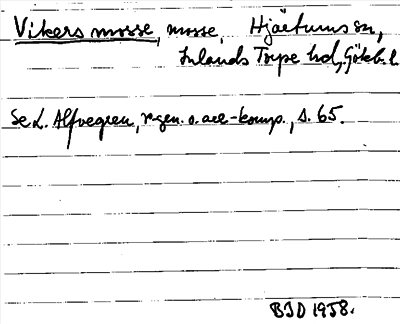 Vikers mosse, mosse, Hjärtums sn,
Inlands Torpe hd, Göteb. l.
Se L. Alfvegren, r-gen. o. ack-komp., s. 65.
BJD 1958.